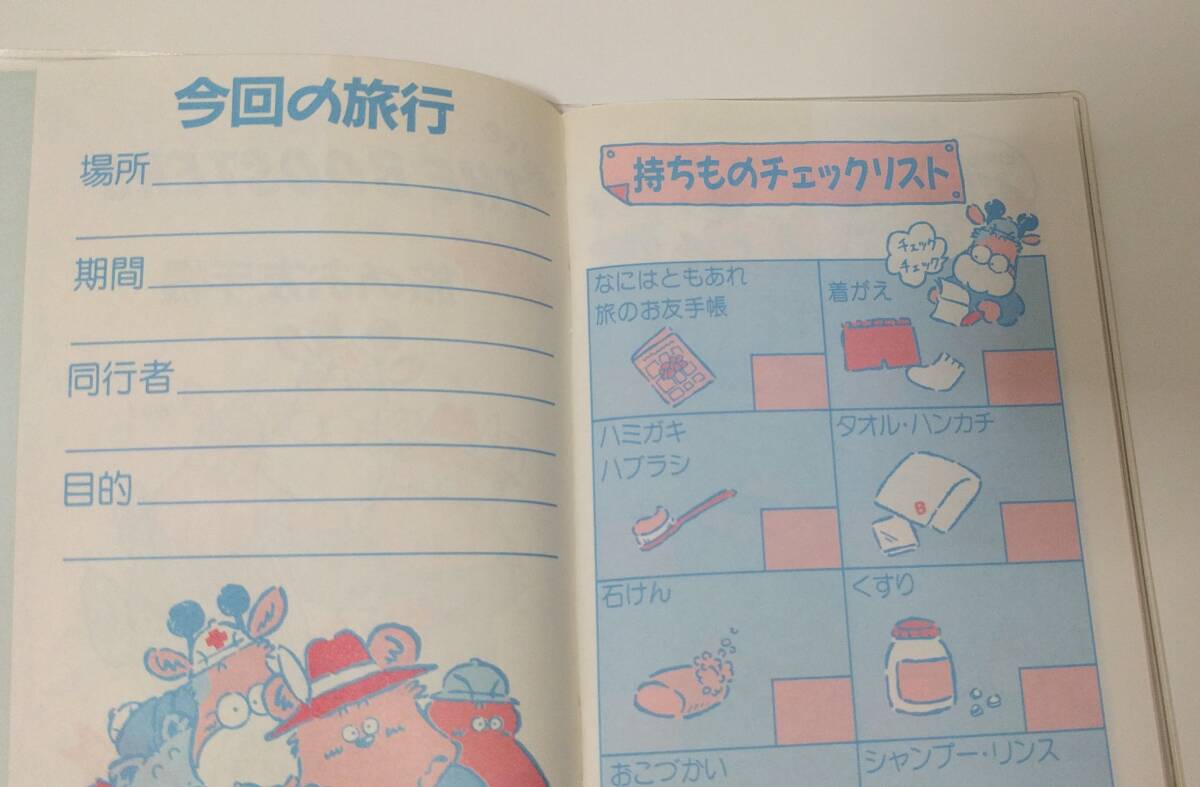 今回の旅行
場所
期間
同行者
目的
持ちものチェックリスト
チェック
チェック
なにはともあれ
旅のお友手帳
着がえ
ハミガキ
ハブラシ
タオル・ハンカチ
B
石けん
くすり
おこづかい
シャンプー・リンス